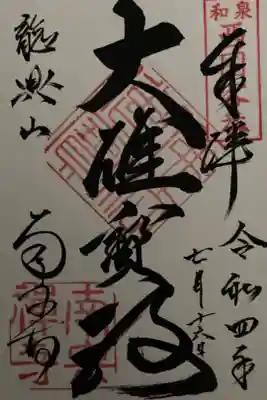 奉拝
令和四年
七月十六日
和泉
大雄寳殿
龍興山
南宗寺